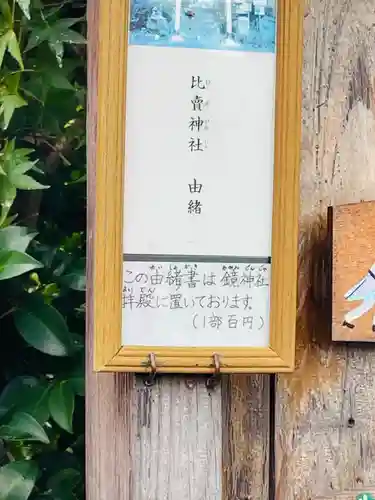 比賣神社 由緒
この由緒書は鏡神社
拝殿に置いております。
(1部百円)